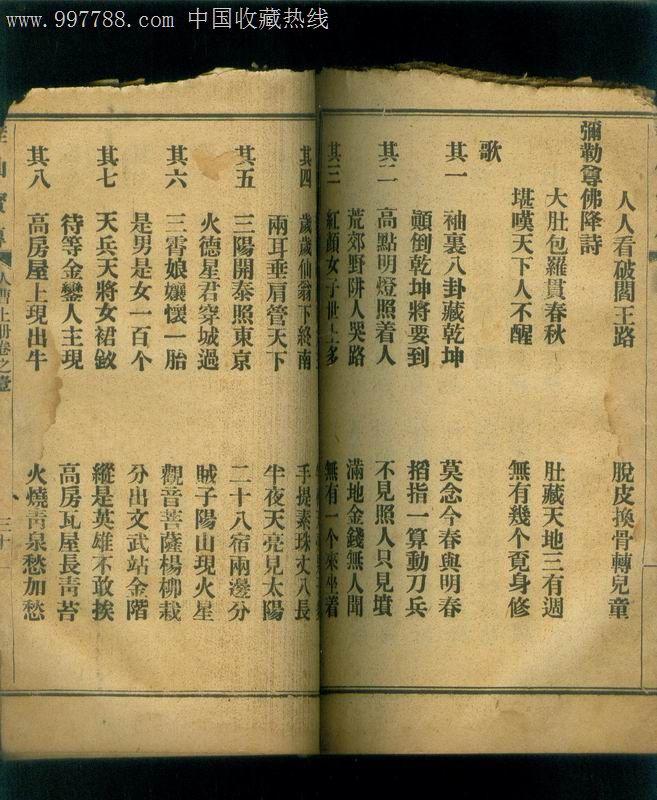 www.997788.com 中国收藏热线
人人看破閻王路 脫皮換骨轉兒童
彌勒尊佛降詩
大肚包羅貫春秋 肚藏天地三有週
堪嘆天下人不醒 無有幾個覓身修
歌
其一 袖裏八卦藏乾坤 莫念今春與明春
顚倒乾坤將要到 搯指一算動刀兵
其二 高點明燈照着人 不見照人只見墳
荒郊野阱人哭路 滿地金錢無人聞
其三 紅顏女子世上多 無有一个來坐着
其四 歲歲仙翁下終南 手提素珠丈八長
兩耳垂肩管天下 半夜天亮見太陽
其五 三陽開泰照東京 二十八宿兩邊分
火德星君穿城過 賊子陽山現火星
其六 三霄娘孃懷一胎 觀音菩薩楊柳栽
是男是女一百个 分出文武站金階
其七 天兵天將女裙釵 縱是英雄不敢挨
待等金鑾人主現 高房瓦屋長靑苔
其八 高房屋上現出牛 火燒靑泉愁加愁
山寶傳 人曹上册卷之壹 三十